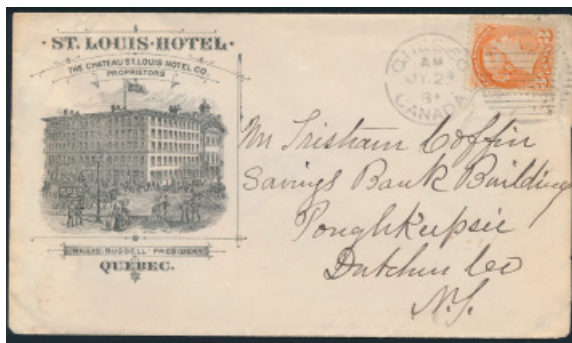 ST. LOUIS-HOTEL
THE CHATEAU ST. LOUIS HOTEL CO.
PROPRIETORS
WILLIS RUSSELL PRESIDENT
QUEBEC.
QUEBEC
AM
JY 24
CANADA
Mr Tristram Coffin
Savings Bank Building
Poughkeepsie
Dutchess Co
N.Y.